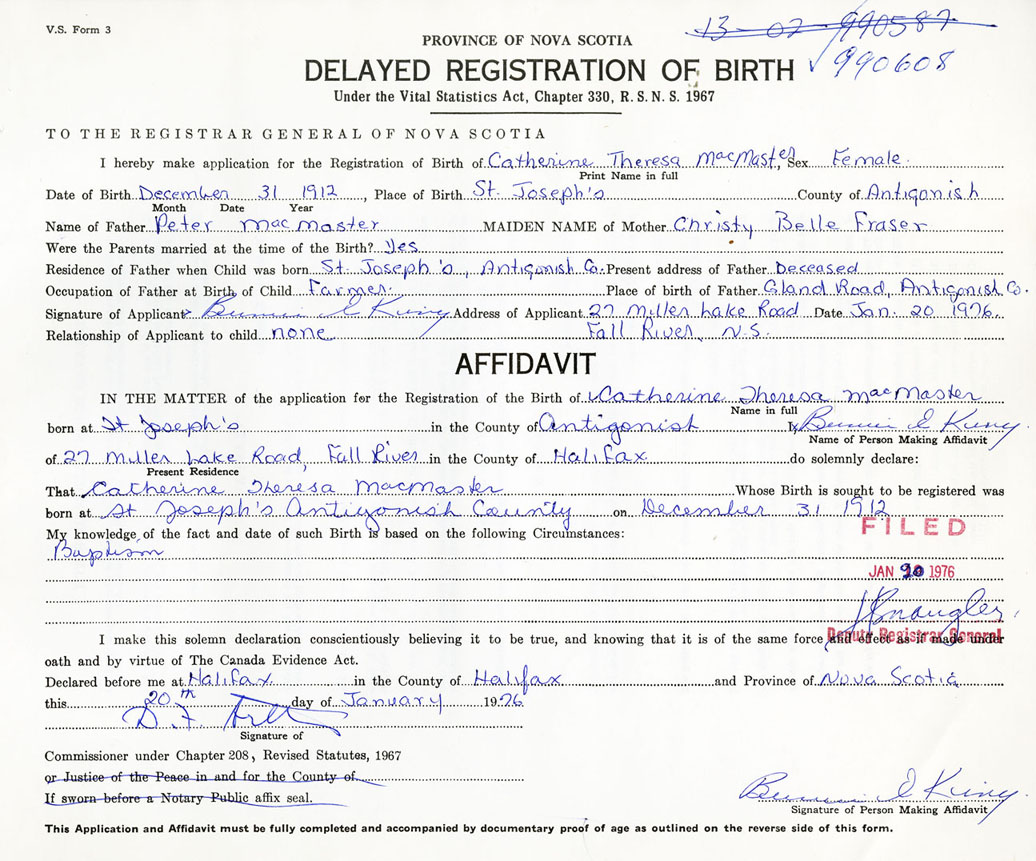 V.S. Form 3
13-02-990587
990608
PROVINCE OF NOVA SCOTIA
DELAYED REGISTRATION OF BIRTH
Under the Vital Statistics Act, Chapter 330, R. S. N. S. 1967
TO THE REGISTRAR GENERAL OF NOVA SCOTIA
I hereby make application for the Registration of Birth of Catherine Theresa MacMaster, Sex Female.
Print Name in full
Date of Birth December 31 1912, Place of Birth St. Joseph's County of Antigonish
Month Date Year
Name of Father Peter MacMaster MAIDEN NAME of Mother Christy Belle Fraser
Were the Parents married at the time of the Birth? Yes
Residence of Father when Child was born St. Joseph's, Antigonish Co. Present address of Father Deceased
Occupation of Father at Birth of Child Farmer. Place of birth of Father Gland Road, Antigonish Co.
Signature of Applicant Address of Applicant 27 Miller Lake Road Date Jan. 20 1976.
Relationship of Applicant to child none Fall River, N.S.
AFFIDAVIT
IN THE MATTER of the application for the Registration of the Birth of Catherine Theresa MacMaster
Name in full
born at St Joseph's in the County of Antigonish I,
Name of Person Making Affidavit
of 27 Miller Lake Road, Fall River in the County of Halifax do solemnly declare:
Present Residence
That Catherine Theresa MacMaster Whose Birth is sought to be registered was
born at St Joseph's Antigonish County on December 31 1912
FILED
My knowledge of the fact and date of such Birth is based on the following Circumstances:
Baptism
JAN 20 1976
I make this solemn declaration conscientiously believing it to be true, and knowing that it is of the same force and effect as if made under
Deputy Registrar General
oath and by virtue of The Canada Evidence Act.
Declared before me at Halifax in the County of Halifax and Province of Nova Scotia
this 20th day of January 1976
Signature of
Commissioner under Chapter 208, Revised Statutes, 1967
or Justice of the Peace in and for the County of
If sworn before a Notary Public affix seal.
Signature of Person Making Affidavit
This Application and Affidavit must be fully completed and accompanied by documentary proof of age as outlined on the reverse side of this form.